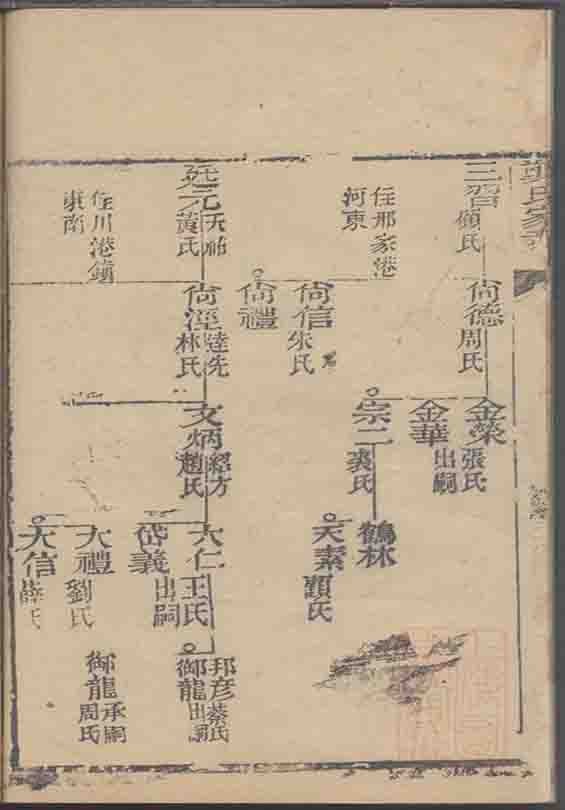 三習
顧氏
住邢家港
河東
尚德
周氏
尚信
朱氏
尚禮
金榮
張氏
金華
出嗣
宗二
裘氏
鶴林
天素
顧氏
天祐
元
黃氏
住川港鎮
東南
尚溼
達先
林氏
文炳
經方
趙氏
大仁
王氏
岱義
出嗣
大禮
劉氏
大信
薛氏
邦彦
蔡氏
御龍
出嗣
御龍
承嗣
周氏